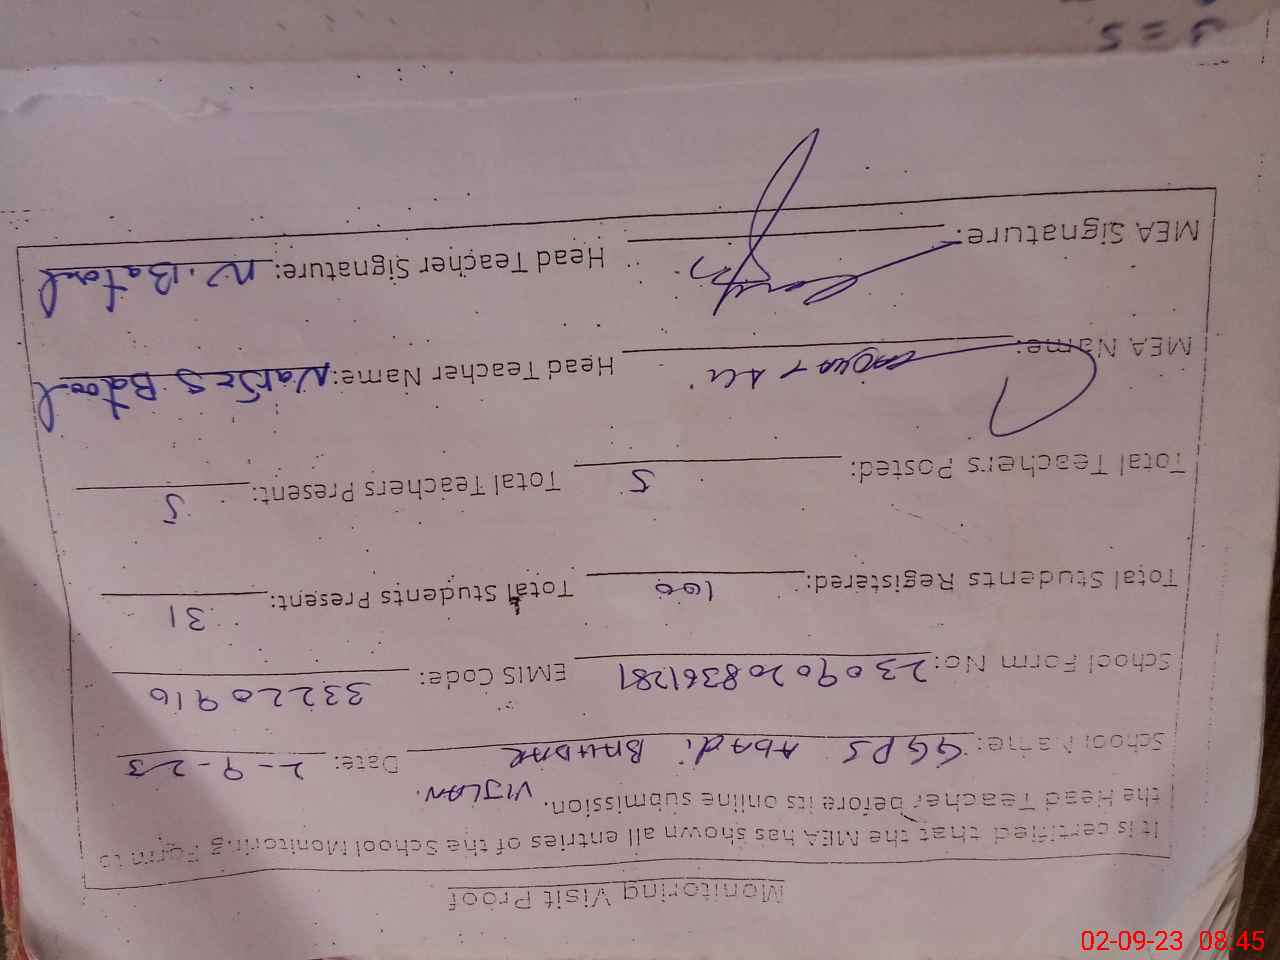 Monitoring Visit Proof
It is certified that the MEA has shown all entries of the School Monitoring Form to
the Head Teacher before its online submission. VIJLAN.
School Name: GGPS Abadi BAHADAR Date: 2-9-23
School Form No: 23090208361281 EMIS Code: 33220910
Total Students Registered: 100 Total Students Present: 31
Total Teachers Posted: 5 Total Teachers Present: 5
MEA Name: Head Teacher Name: Narges Batool
MEA Signature: Head Teacher Signature: N. Batool
02-09-23 08:45